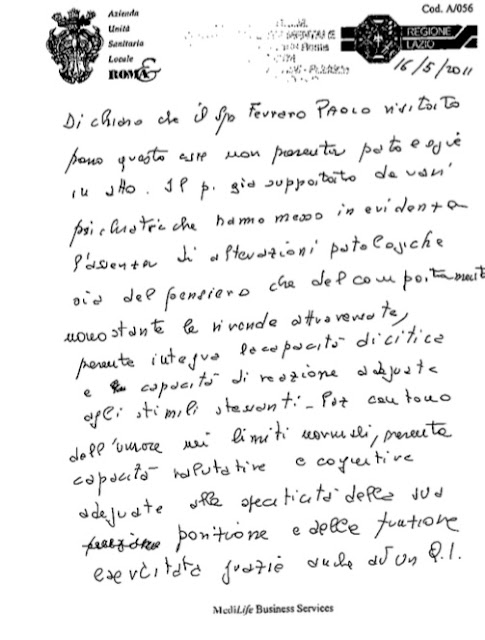 Azienda
Unità
Sanitaria
Locale
ROMA E
Cod. A/056
REGIONE
LAZIO
16/5/2011
Dichiaro che il Sig Ferraro PAOLO visitato
questo non presenta patologie
in atto. Il p. già supportato da vari
psichiatri che hanno messo in evidenza
l'assenza di alterazioni patologiche
sia del pensiero che del comportamento
nonostante le vicende attraversate,
presenta integra la capacità di critica
e capacità di reazione adeguata
agli stimoli stressanti - Paz con tono
dell'umore nei limiti normali, presenta
capacità valutative e cognitive
adeguate alla specificità della sua
posizione e della funzione
esercitata grazie anche ad un Q.I.
MediLife Business Services